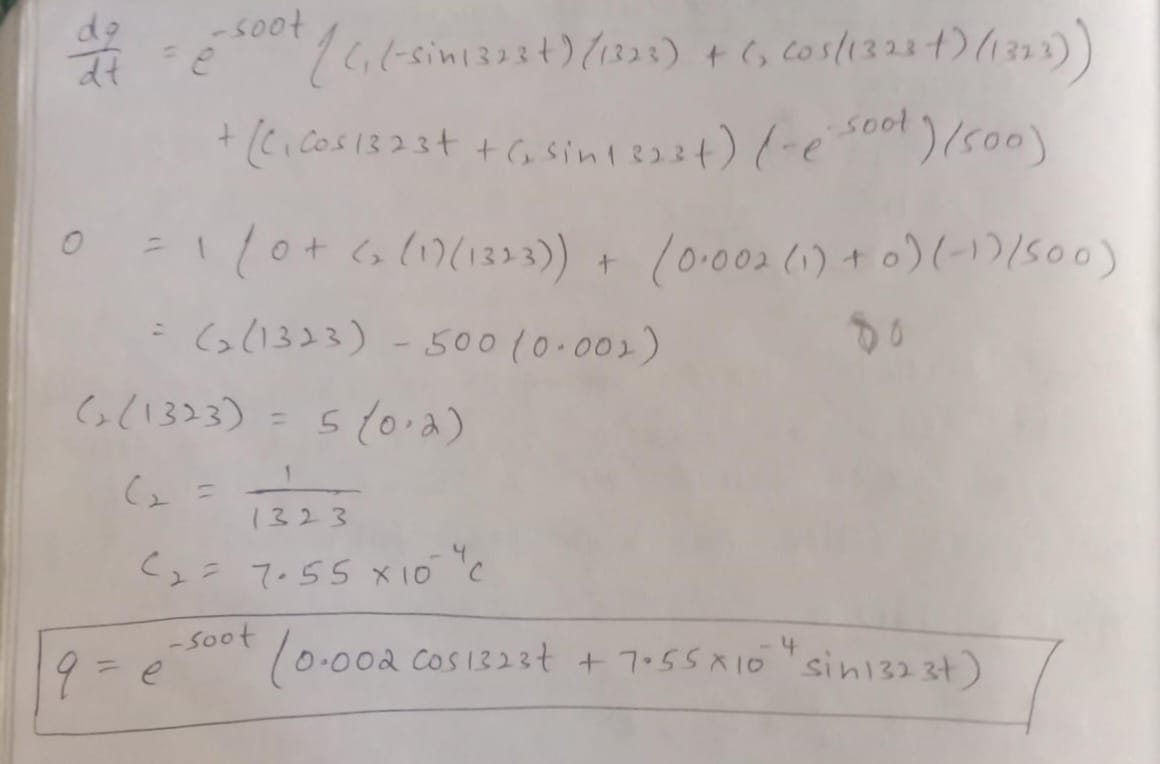 dq/dt = e^-500t (C₁(-sin1323t)(1323) + C₂ cos(1323t)(1323))
+ (C₁ cos1323t + C₂ sin1323t) (-e^-500t)(500)
0 = 1 (0 + C₂ (1)(1323)) + (0.002 (1) + 0)(-1)(500)
= C₂(1323) - 500 (0.002)
C₂(1323) = 5 (0.2)
C₂ = 1/1323
C₂ = 7.55 × 10^-4 C
q = e^-500t (0.002 cos1323t + 7.55 × 10^-4 sin1323t)